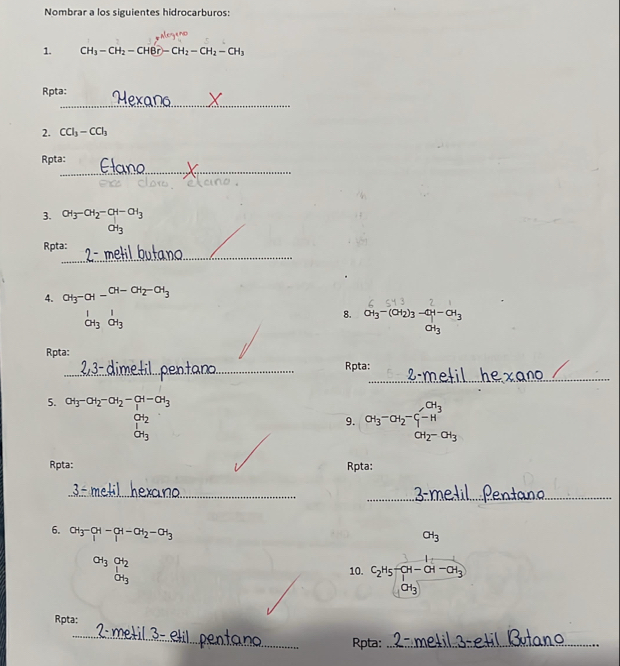 Nombrar a los siguientes hidrocarburos:
alógeno
1. CH3 – CH2 – CHBr – CH2 – CH2 – CH3
Rpta: Hexano X
2. CCl3 – CCl3
Rpta: Etano X
exa cloro etano.
3. CH3–CH2–CH–CH3
CH3
Rpta: 2- metil butano
4. CH3–CH – CH– CH2–CH3
CH3 CH3
Rpta: 2,3-dimetil pentano
5. CH3–CH2–CH2 – CH –CH3
CH2
CH3
Rpta: 3- metil hexano
6. CH3–CH – CH – CH2 –CH3
CH3 CH2
CH3
Rpta: 2-metil 3-etil pentano
6 5 4 3 2 1
8. CH3 – (CH2)3 –CH – CH3
CH3
Rpta: 2-metil hexano
CH3
9. CH3 –CH2 – C – H
CH2– CH3
Rpta: 3-metil Pentano
CH3
10. C2H5–CH – CH –CH3
CH3
Rpta: 2-metil 3-etil Butano